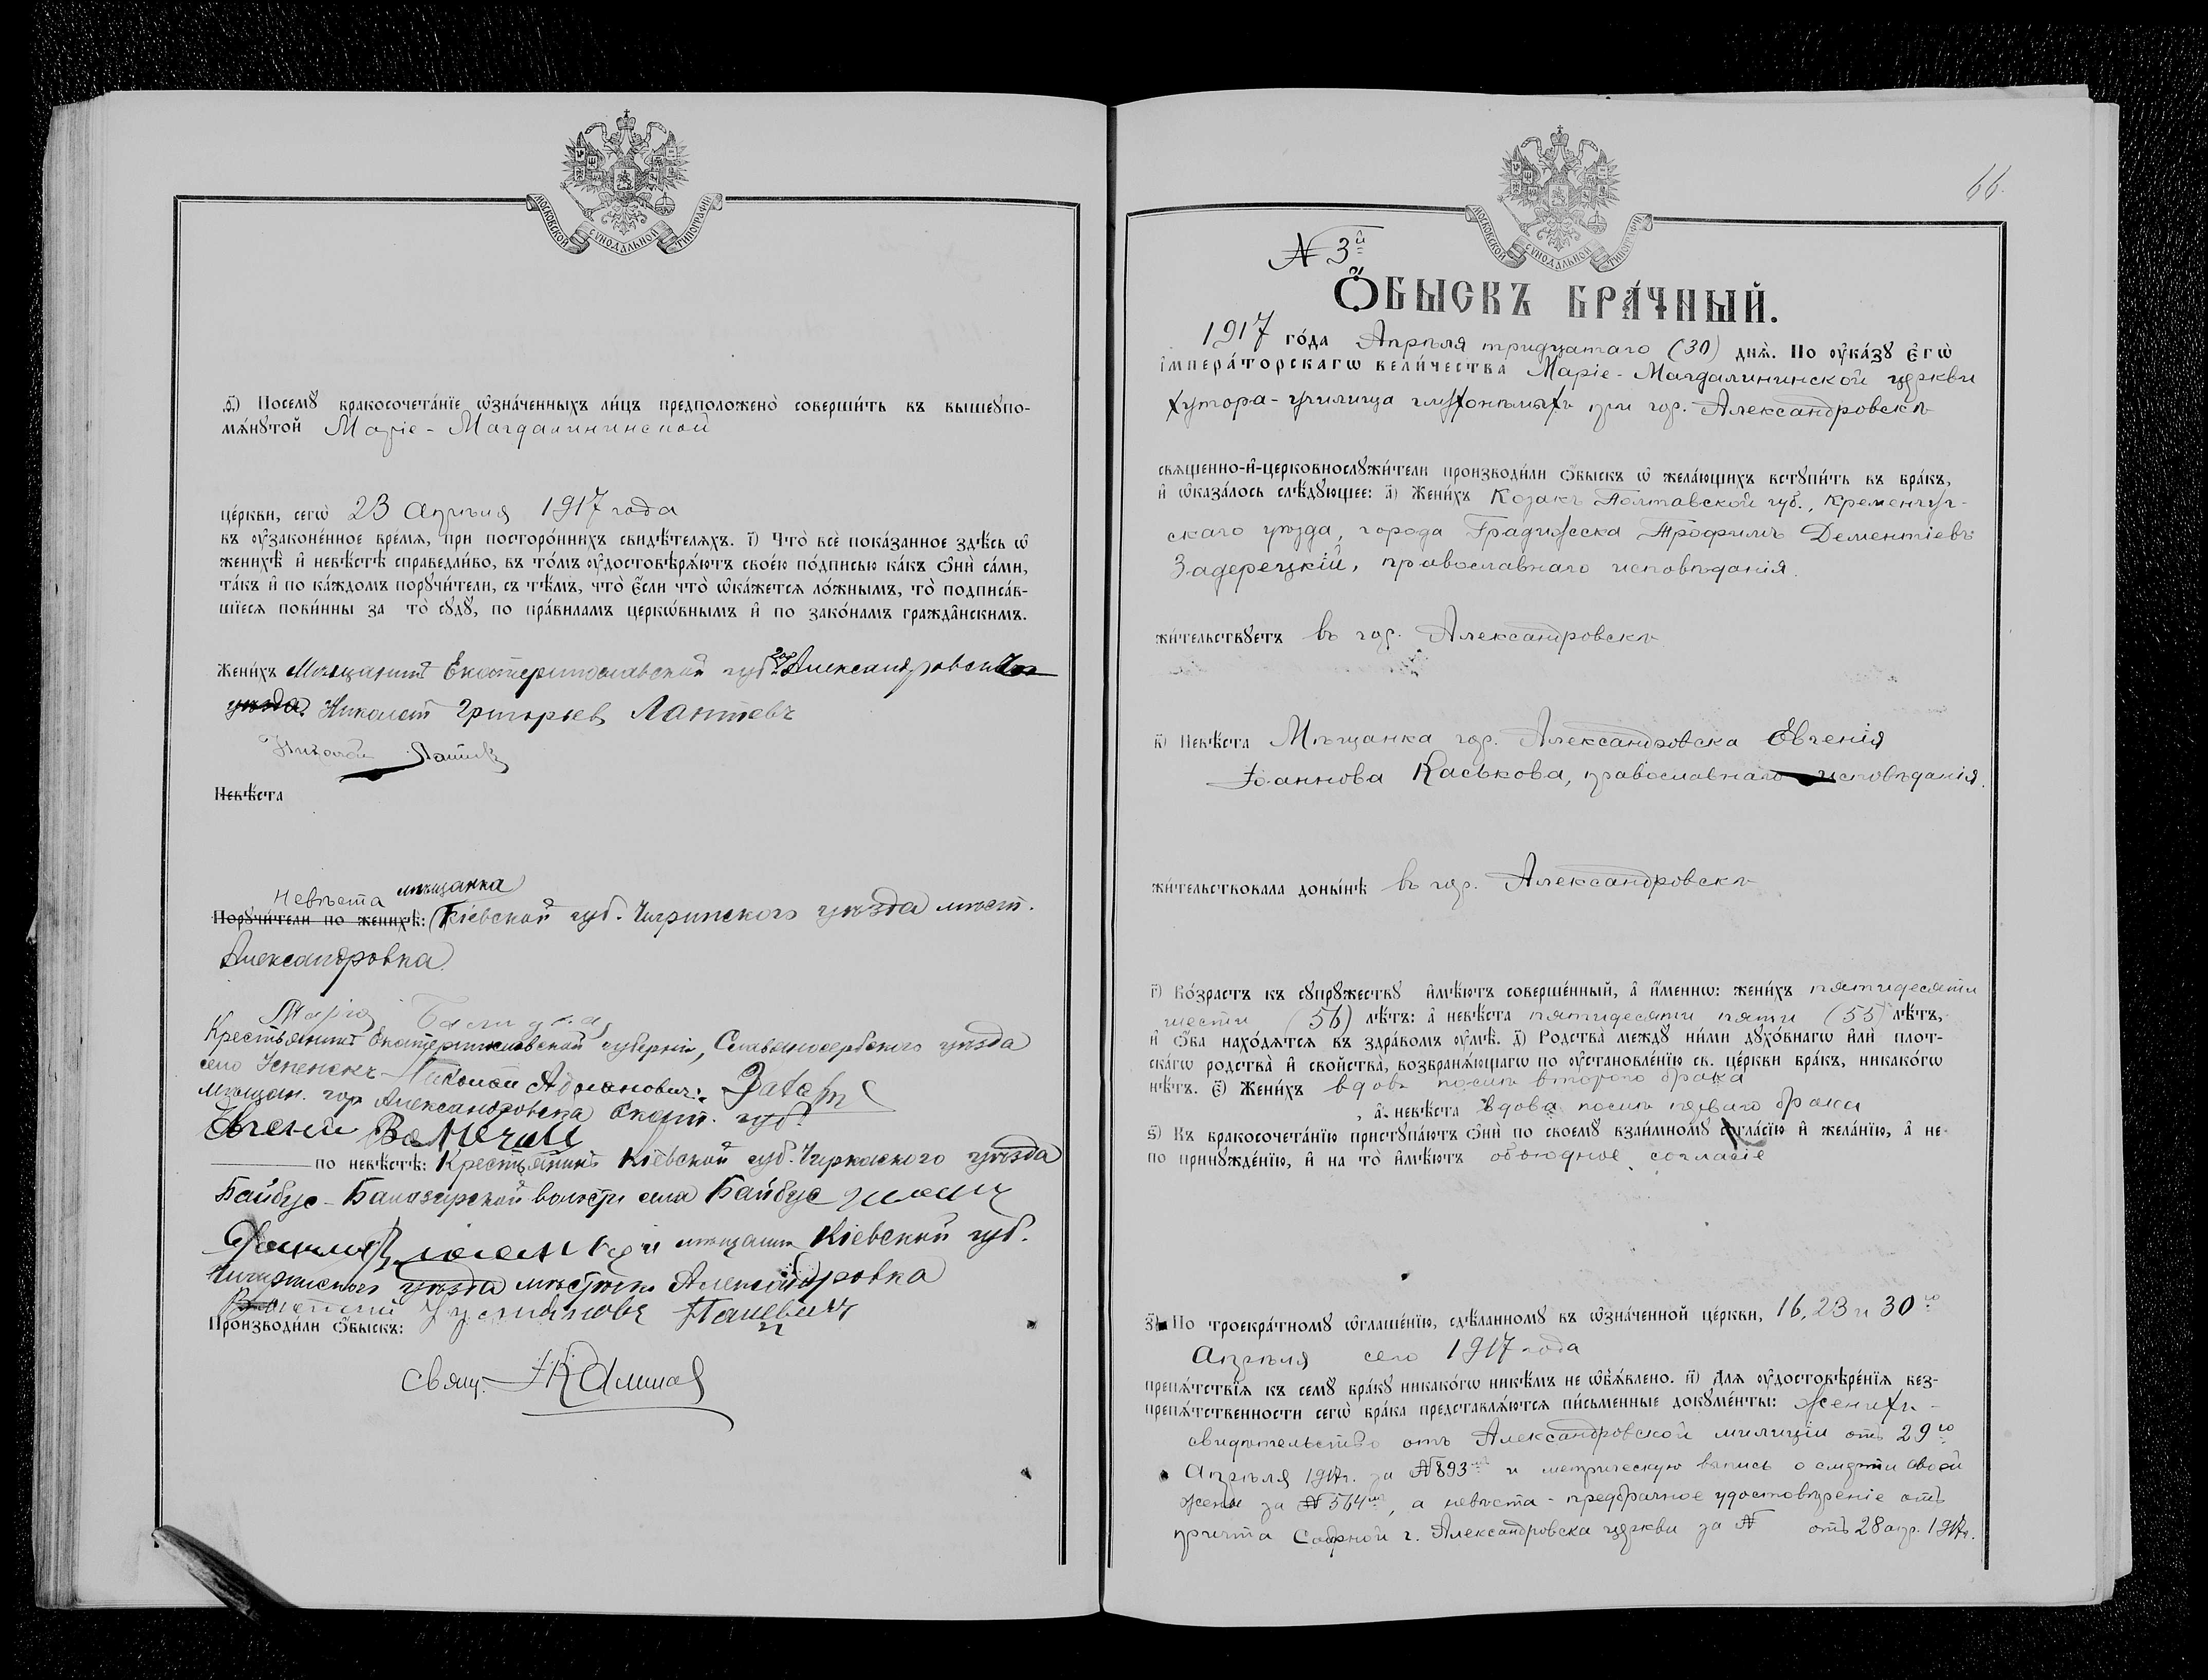 МОСКОВСКОЙ СѴНОДАЛЬНОЙ ТИПОГРАФІИ
ѳ҃) Посемꙋ̀ бракосочета́нїе ѡ҆зна́ченныхъ ли́цъ предположено̀ соверши́ть въ вышеꙋпо-
мѧ́нꙋтой Маріе-Магдалининской
це́ркви, сегѡ̀ 23 апрѣля 1917 года
въ ᲂу҆законе́нное вре́мѧ, при посторо́ннихъ свидѣ́телѧхъ. і҃) Что̀ всѐ пока́занное здѣ́сь ѡ҆
женихѣ̀ и҆ невѣ́стѣ справедли́во, въ то́мъ ᲂу҆достовѣрѧ́ютъ свое́ю по́дписью ка́къ ѻ҆нѝ са́ми,
та́къ и҆ по ка́ждомъ порꙋчи́тели, съ тѣ́мъ, что̀ є҆́сли что̀ ѡ҆ка́жетсѧ ло́жнымъ, то̀ подписа́в-
шїесѧ пови́нны за то̀ сꙋдꙋ̀, по пра́виламъ церкѡ́внымъ и҆ по зако́намъ гражда̑нскимъ.
Жени́хъ Мѣщанинъ Екатеринославской губ. гор. Александровска
уѣзда Николай Григорьев Лаптевъ
Николай Лаптев
Невѣ́ста
Невѣста мѣщанка
Порꙋчи́тели по женихѣ̀: Кіевской губ. Чигринского уѣзда мѣст.
Александровка
Марія
Крестьянинъ Екатеринославской губерніи, Славяносербского уѣзда
село Успенскъ Николай
мѣщан. гор Александровска Екат. губ.
Евгений
по невѣ́стѣ: Крестьянинъ Кіевской губ. Чиркаского уѣзда
Байбус- волости села Байбус
мѣщанин Кіевской губ.
Чигринского уѣзда мѣстечко Александровка
Производи́ли ѻ҆́быскъ:
Свящ.
66.
МОСКОВСКОЙ СѴНОДАЛЬНОЙ ТИПОГРАФІИ
№ 3й
Ѻ҆́БЫСКЪ БРА́ЧНЫЙ.
1917 го́да Апрѣля тридцатаго (30) днѧ̀. По ᲂу҆ка́зꙋ є҆гѡ̀
і҆мпера́торскагѡ вели́чества Маріе-Магдалининской церкви
Хутора-училища глухонѣмыхъ при гор. Александровскѣ
свѧще́нно-и҆-церковнослꙋжи́тели производи́ли ѻ҆́быскъ ѡ҆ жела́ющихъ встꙋпи́ть въ бра́къ,
и҆ ѡ҆каза́лось слѣ́дꙋющее: а҃) Жени́хъ Козакъ Полтавской губ., Кременчуг-
скаго уѣзда, города Градижска Трофимъ Дементіевъ
Задерецкій, православнаго исповѣданія.
жи́тельствꙋетъ въ гор. Александровскѣ
в҃) Невѣ́ста Мѣщанка гор. Александровска Евгенія
Іоаннова Каськова, православнаго исповѣданія.
жи́тельствовала доны́нѣ въ гор. Александровскѣ
г҃) Во́зрастъ къ сꙋпрꙋ́жествꙋ и҆мѣ́ютъ соверше́нный, а҆ и҆́меннѡ: жени́хъ пятидесяти
шести (56) лѣ́тъ: а҆ невѣ́ста пятидесяти пяти (55) лѣ́тъ,
и҆ ѻ҆́ба нахо́дѧтсѧ въ здра́вомъ ᲂу҆мѣ̀. д҃) Родства̀ междꙋ̀ ни́ми дꙋхо́внагѡ и҆лѝ плот-
ска́гѡ родства̀ и҆ сво́йства̀, возбранѧ́ющагѡ по ᲂу҆становле́нїю св. це́ркви бра́къ, никако́гѡ
нѣ́тъ. є҃) Жени́хъ вдовъ послѣ второго брака
, а҆ невѣ́ста вдова послѣ перваго брака
ѕ҃) Къ бракосочета́нїю пристꙋпа́ютъ ѻ҆нѝ по своемꙋ̀ взаи́мномꙋ согла́сїю и҆ жела́нїю, а҆ не
по принꙋжде́нїю, и҆ на то̀ и҆мѣ́ютъ обоюдное согласіе
з҃) По троекра́тномꙋ ѡ҆глаше́нїю, сдѣ́ланномꙋ въ ѡ҆зна́ченной це́ркви, 16, 23 и 30го
Апрѣля сего 1917 года
препѧ́тствїѧ къ семꙋ̀ бра́кꙋ никако́гѡ никѣ́мъ не ѡ҆б̾ѧ́влено. и҃) Длѧ ᲂу҆достовѣре́нїѧ без-
препѧ́тственности сегѡ̀ бра́ка представлѧ́ютсѧ пи́сьменные докꙋме́нты: Жених-
свидѣтельство отъ Александровской милиціи отъ 29го
Апрѣля 1917г. за № 893 и метрическую выпись о смерти своей
жены за № 564, а невѣста - предбрачное удостовѣреніе отъ
причта Соборной г. Александровска церкви за № отъ 28 апр. 1917г.